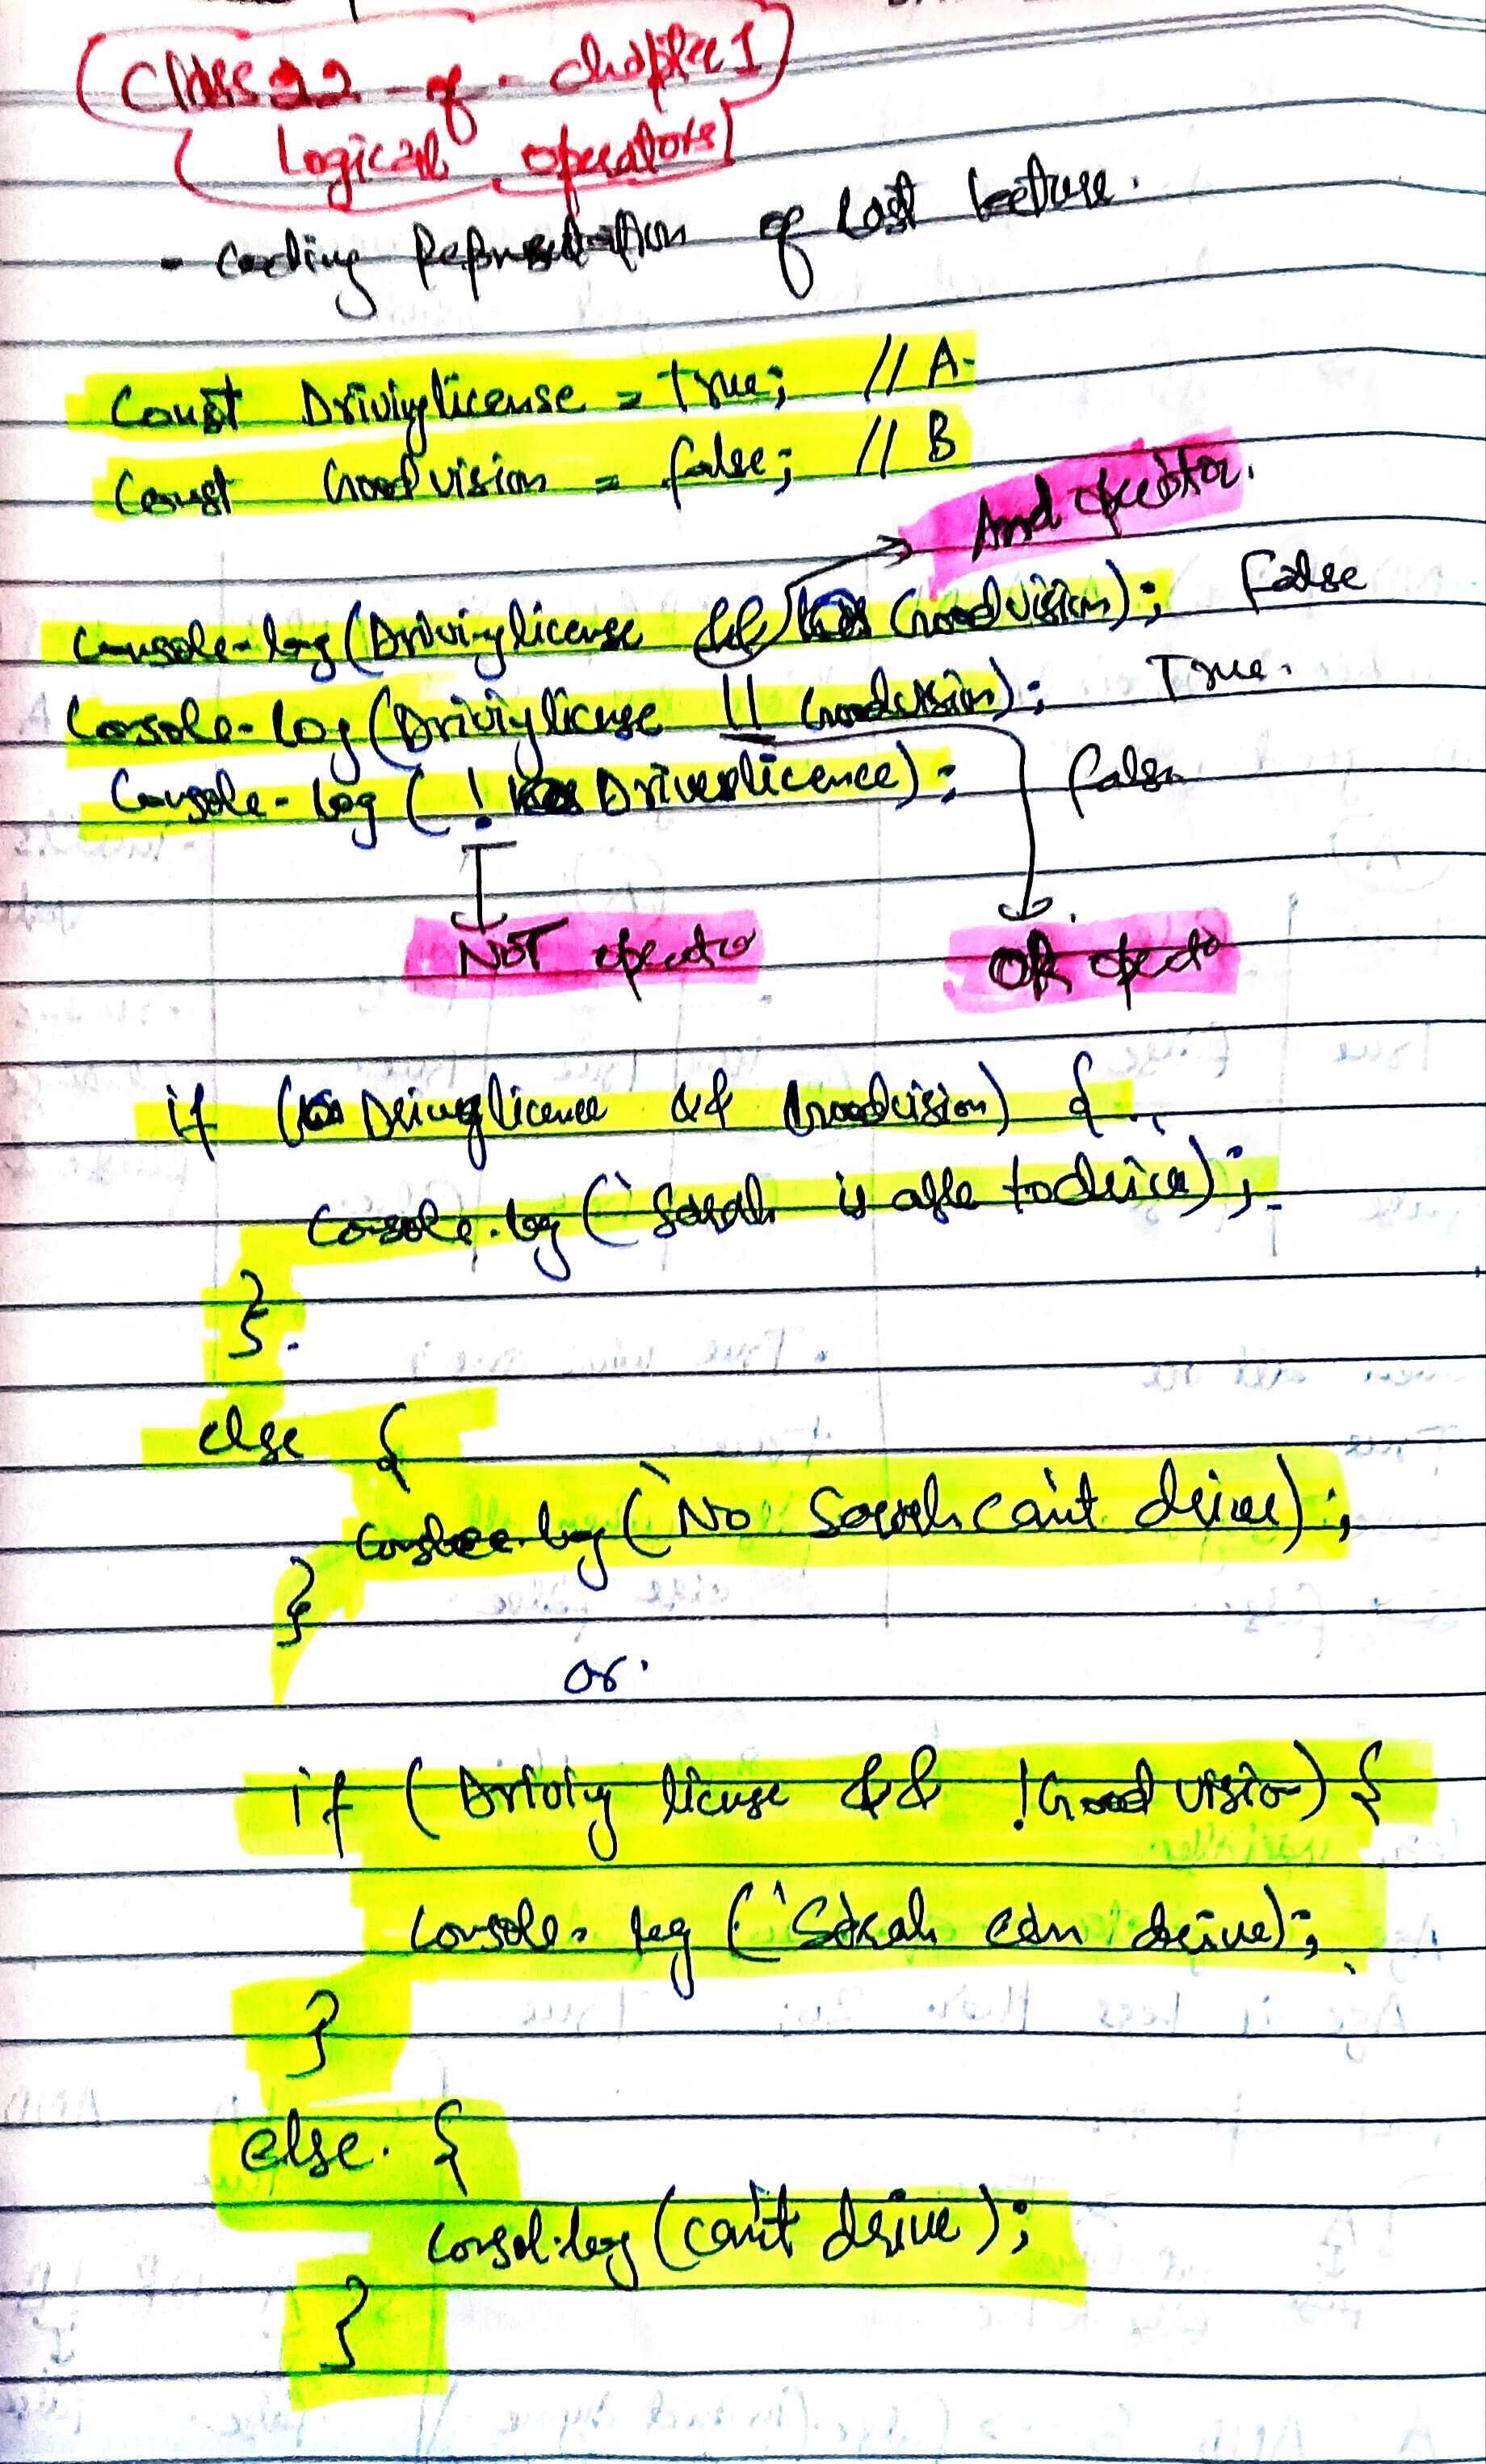 Class 22 - of - chapter 1
Logical operators
- Coding Representation of Last lecture.
Const Drivinglicense = True; // A.
Const Goodvision = false; // B
And operator.
Console.log(Drivinglicense && Goodvision); False
Console.log(Drivinglicense || Goodvision); True.
Console.log ( ! Driverslicence); false
NOT operator OR operator
if (Drivinglicence && Goodvision) {
Console.log (`Sarah is able to drive);
}.
else {
Console.log (`No Sarah can't drive);
}
or.
if (Driving license && !Good vision) {
Console.log (`Sarah can drive);
}
else. {
Consol.log (can't drive);
}